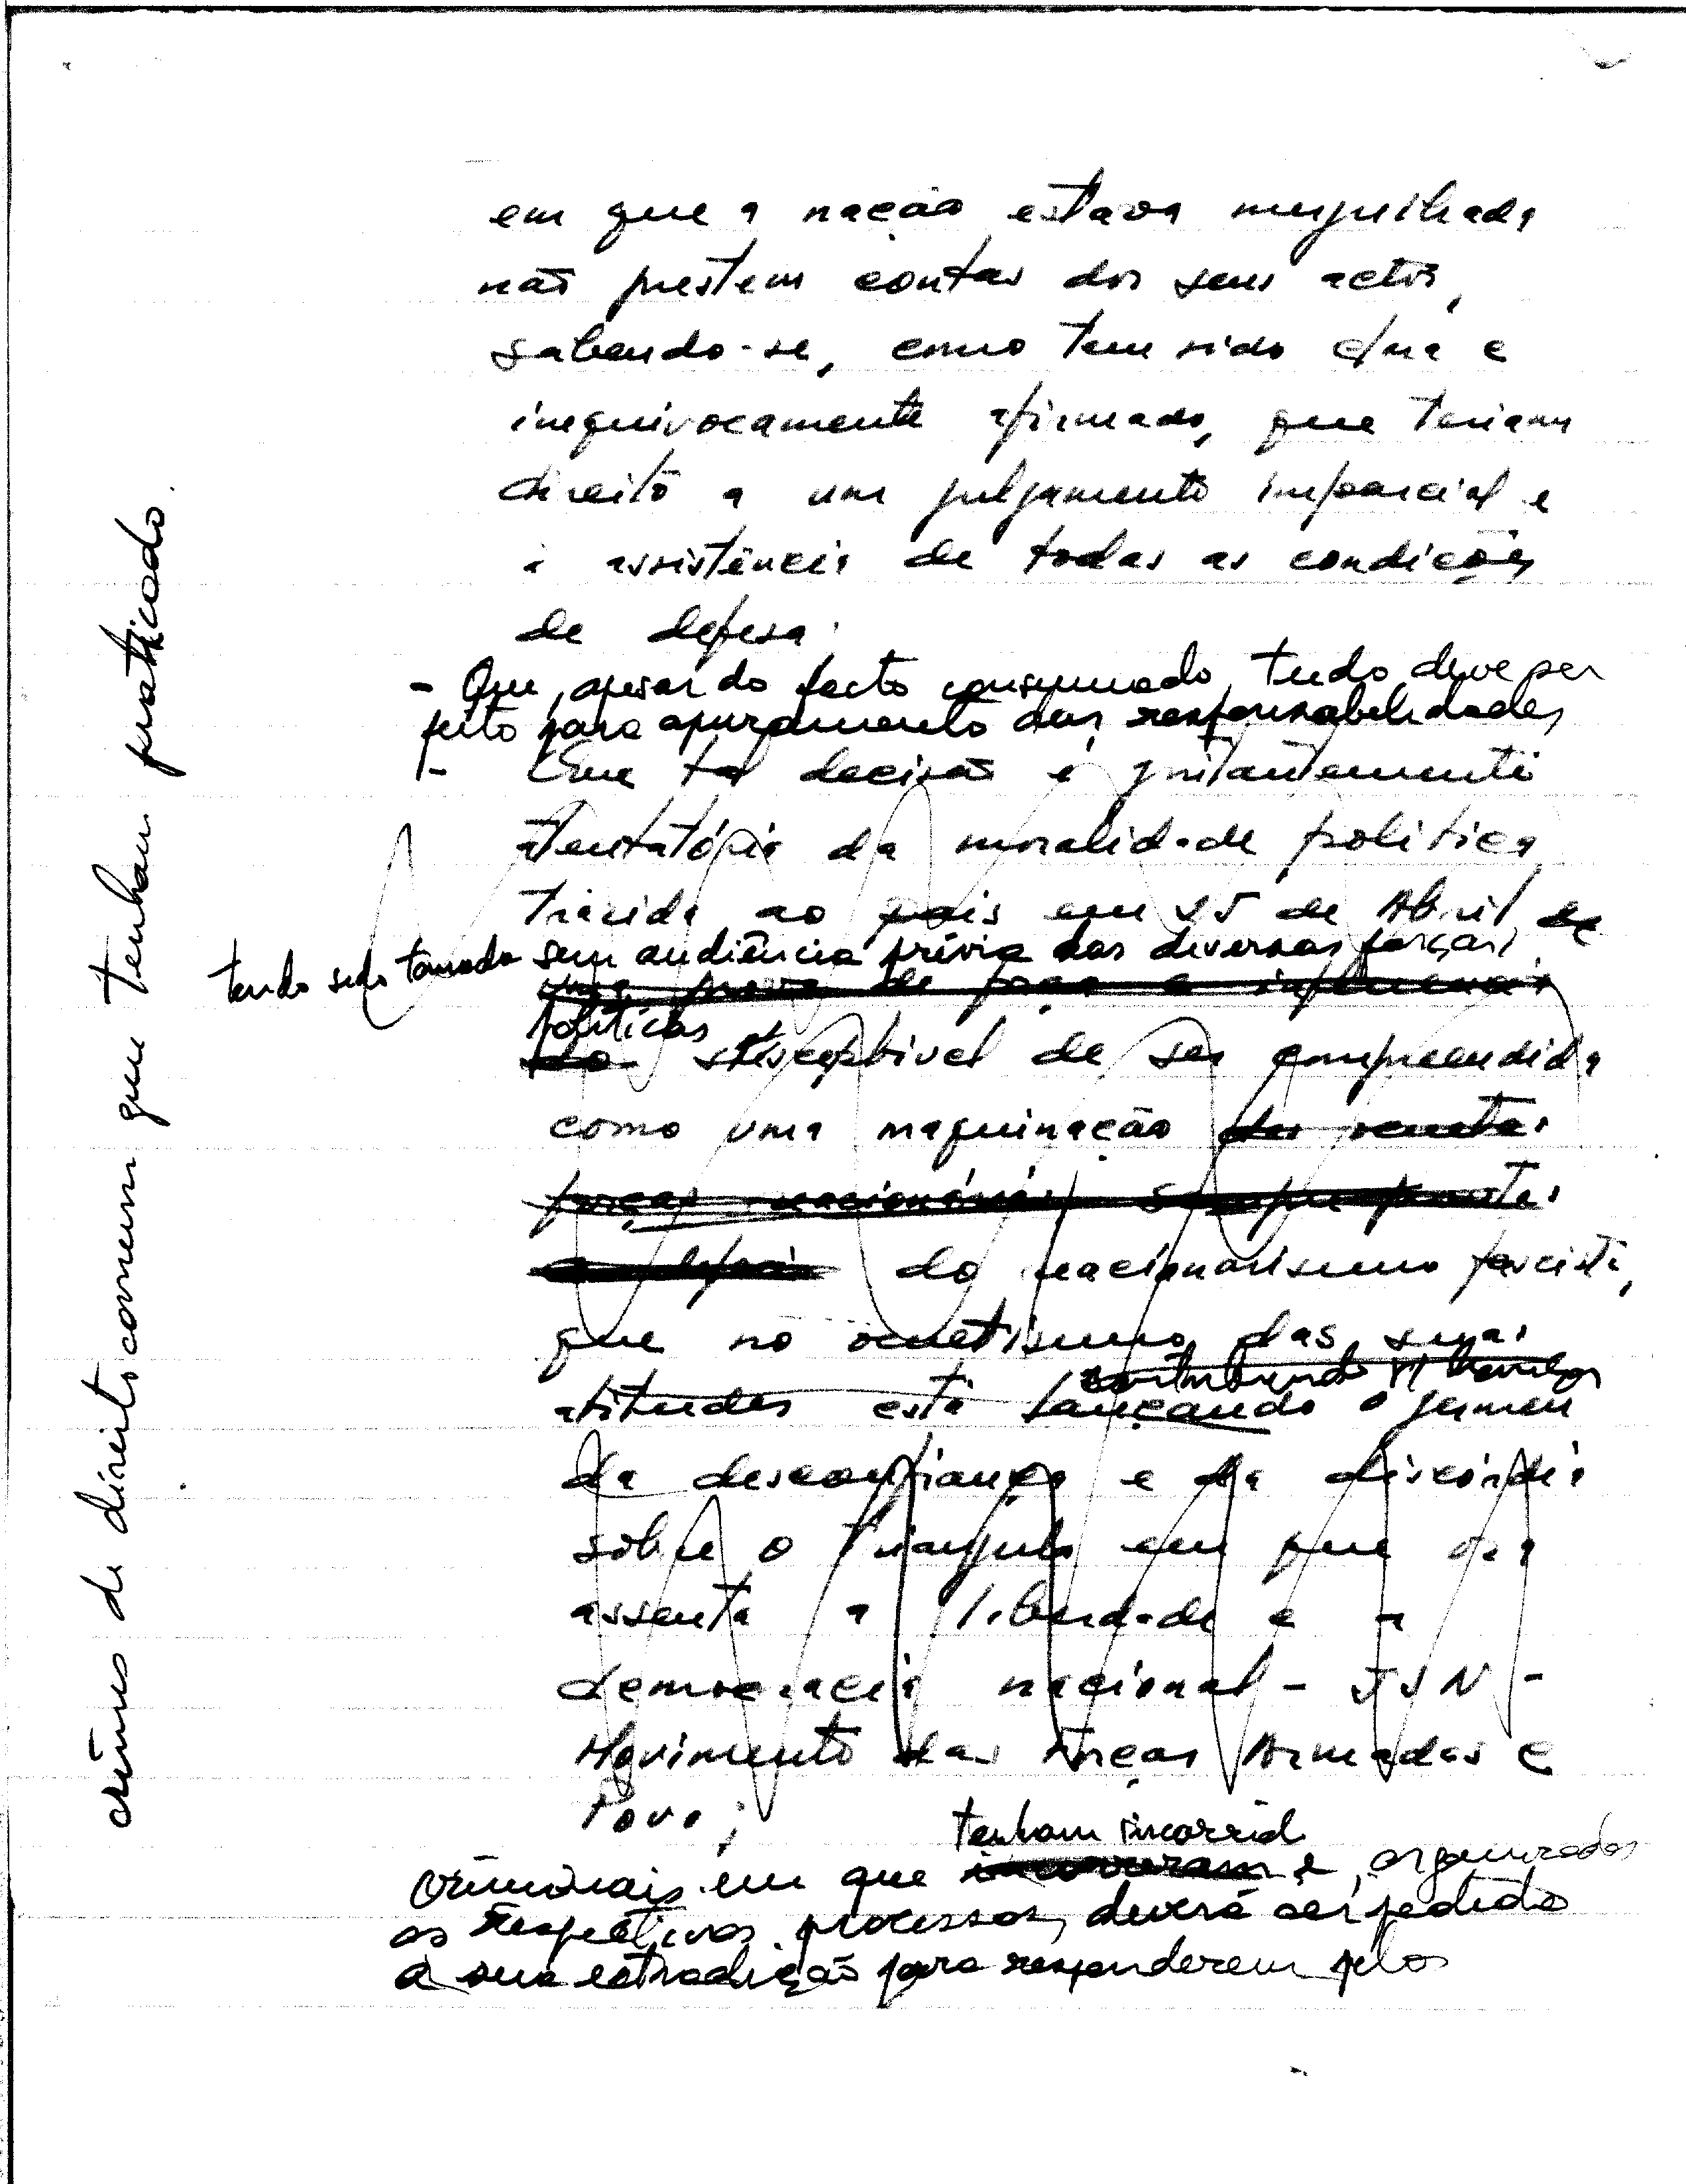 em que a nação estava mergulhada
não prestem contas dos seus actos,
sabendo-se, como tem sido clara e
inequivocamente afirmado, que teriam
direito a um julgamento imparcial e
à assistência de todas as condições
de defesa;
- Que, apesar do facto consumado, tudo deve ser
feito para apuramento das responsabilidades
- Que tal decisão é gritantemente
atentatória da moralidade política
trazida ao país em 25 de Abril de
tendo sido tomada sem audiência prévia das diversas forças
uma prova de força e influência
políticas
do susceptível de ser compreendida
como uma maquinação das
forças reacionárias sempre
do reacionarismo fascista,
que no das suas
contribuindo p/
atitudes está lançando o germen
da desconfiança e da discórdia
sobre o triângulo em que ora
assenta a liberdade e a
democracia nacional - JSN -
Movimento das Forças Armadas e
Povo;
tenham incorrido
criminais em que incorreram e, organizados
os respectivos processos, deverá ser pedida
a sua estradição para responderem pelos
crimes de direito comum que tenham praticado.